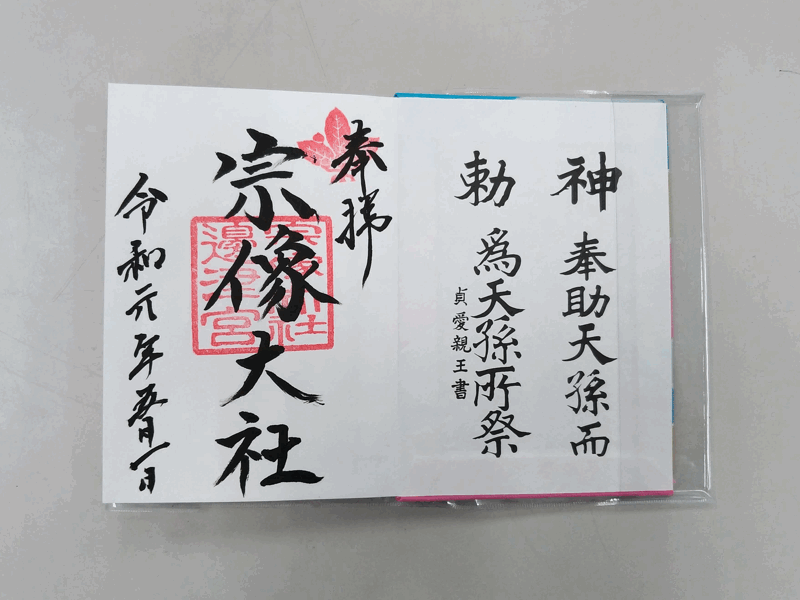 神 奉助天孫而
勅 爲天孫所祭
貞愛親王書
奉拝
宗像大社
邊津宮
令和元年五月一日